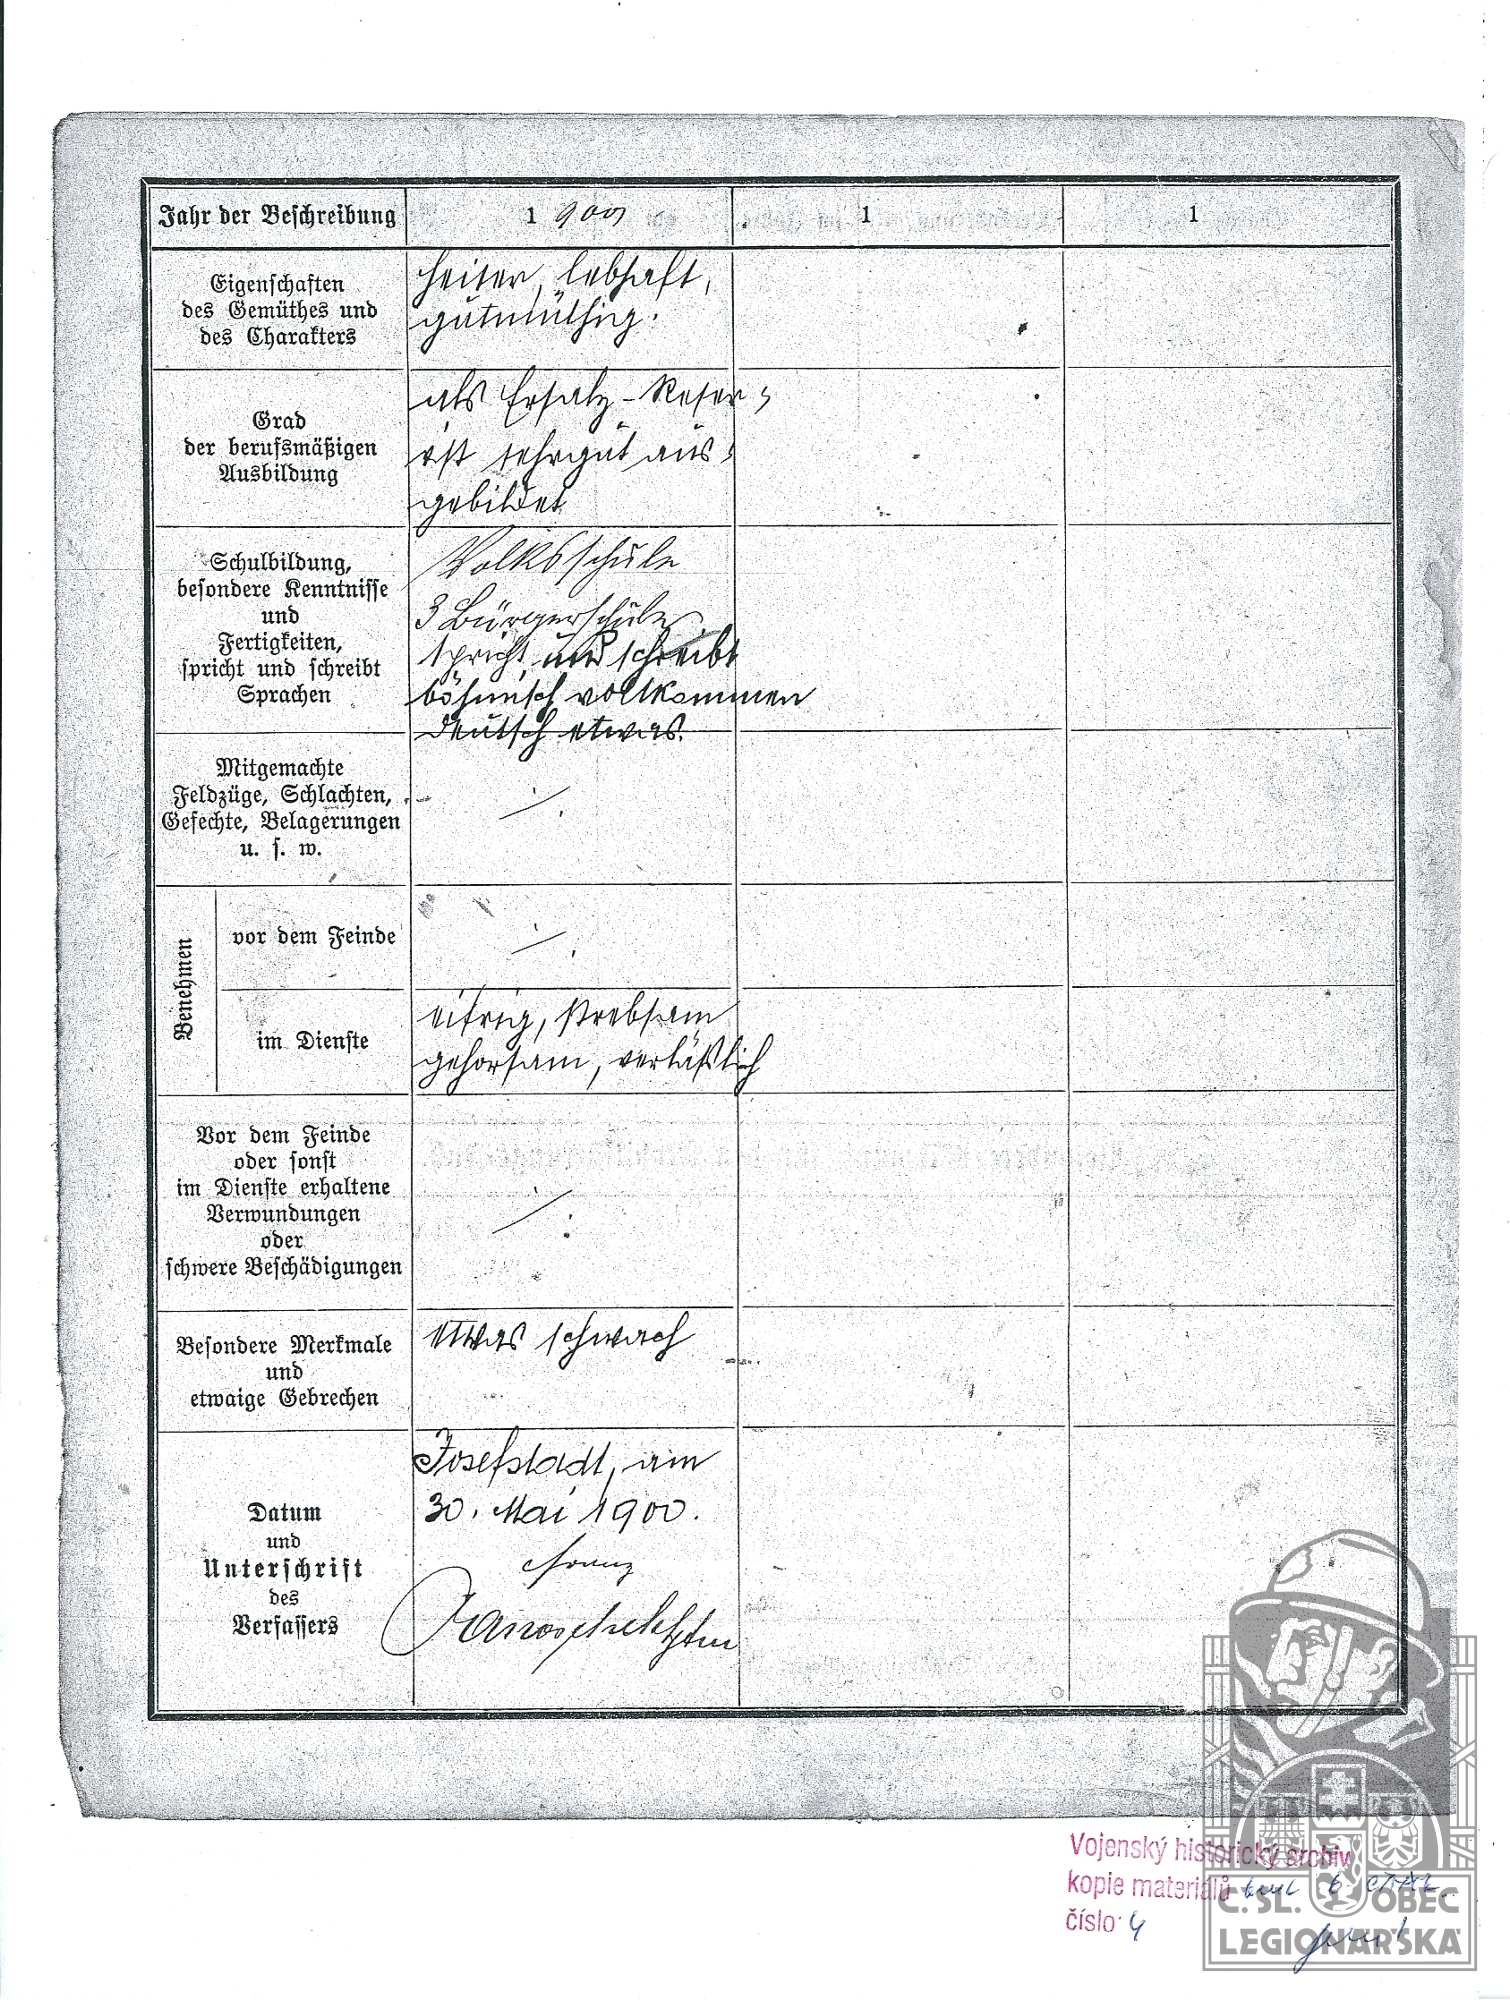 Jahr der Beschreibung
1 900
1
1
Eigenschaften
des Gemüthes und
des Charakters
heiter, lebhaft,
gutmüthig.
Grad
der berufsmäßigen
Ausbildung
als Ersatz-Reser-
vist sehr gut aus-
gebildet
Schulbildung,
besondere Kenntnisse
und
Fertigkeiten,
spricht und schreibt
Sprachen
Volksschule
3 Bürgerschule
spricht und schreibt
böhmisch vollkommen
deutsch etwas.
Mitgemachte
Feldzüge, Schlachten,
Gefechte, Belagerungen
u. s. w.
./.
Benehmen
vor dem Feinde
./.
im Dienste
eifrig, strebsam
gehorsam, verläßlich
Vor dem Feinde
oder sonst
im Dienste erhaltene
Verwundungen
oder
schwere Beschädigungen
./.
Besondere Merkmale
und
etwaige Gebrechen
etwas schwach
Datum
und
Unterschrift
des
Verfassers
Josefstadt, am
30. Mai 1900.
Franz
Vojenský historický archiv
kopie materiálů
číslo 4
Č. SL. OBEC
LEGIONÁŘSKÁ